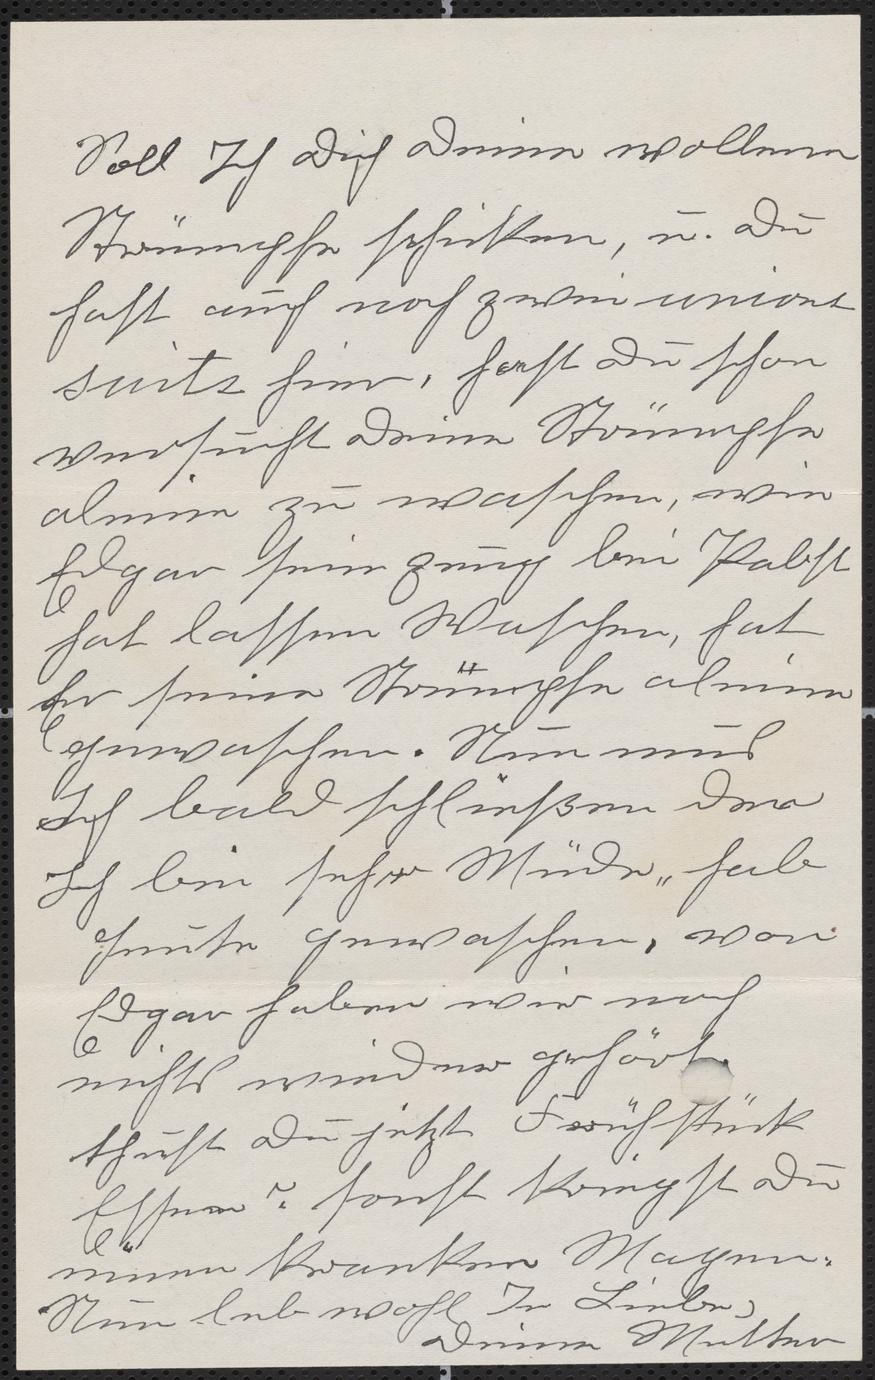 Soll Ich Dich Deine wollene
Strümpfe schicken, u. Du
hast auch noch zwei uniont
suits hier, hast Du schon
versucht Deine Strümpfe
aleine zu waschen, wie
Edgar sein zeug bei Pabst
hat lassen Waschen, hat
Er seine Strümpfe aleine
gewaschen. Nun mus
Ich bald schließen den
Ich bin sehr Müde, hab
heute gewaschen, von
Edgar haben wir noch
nichts wieder gehört.
thust Du jetzt Frühstück
Essen? sonst kriegst Du
einen kranken Magen.
Nun leb wohl In Liebe,
Deine Mutter